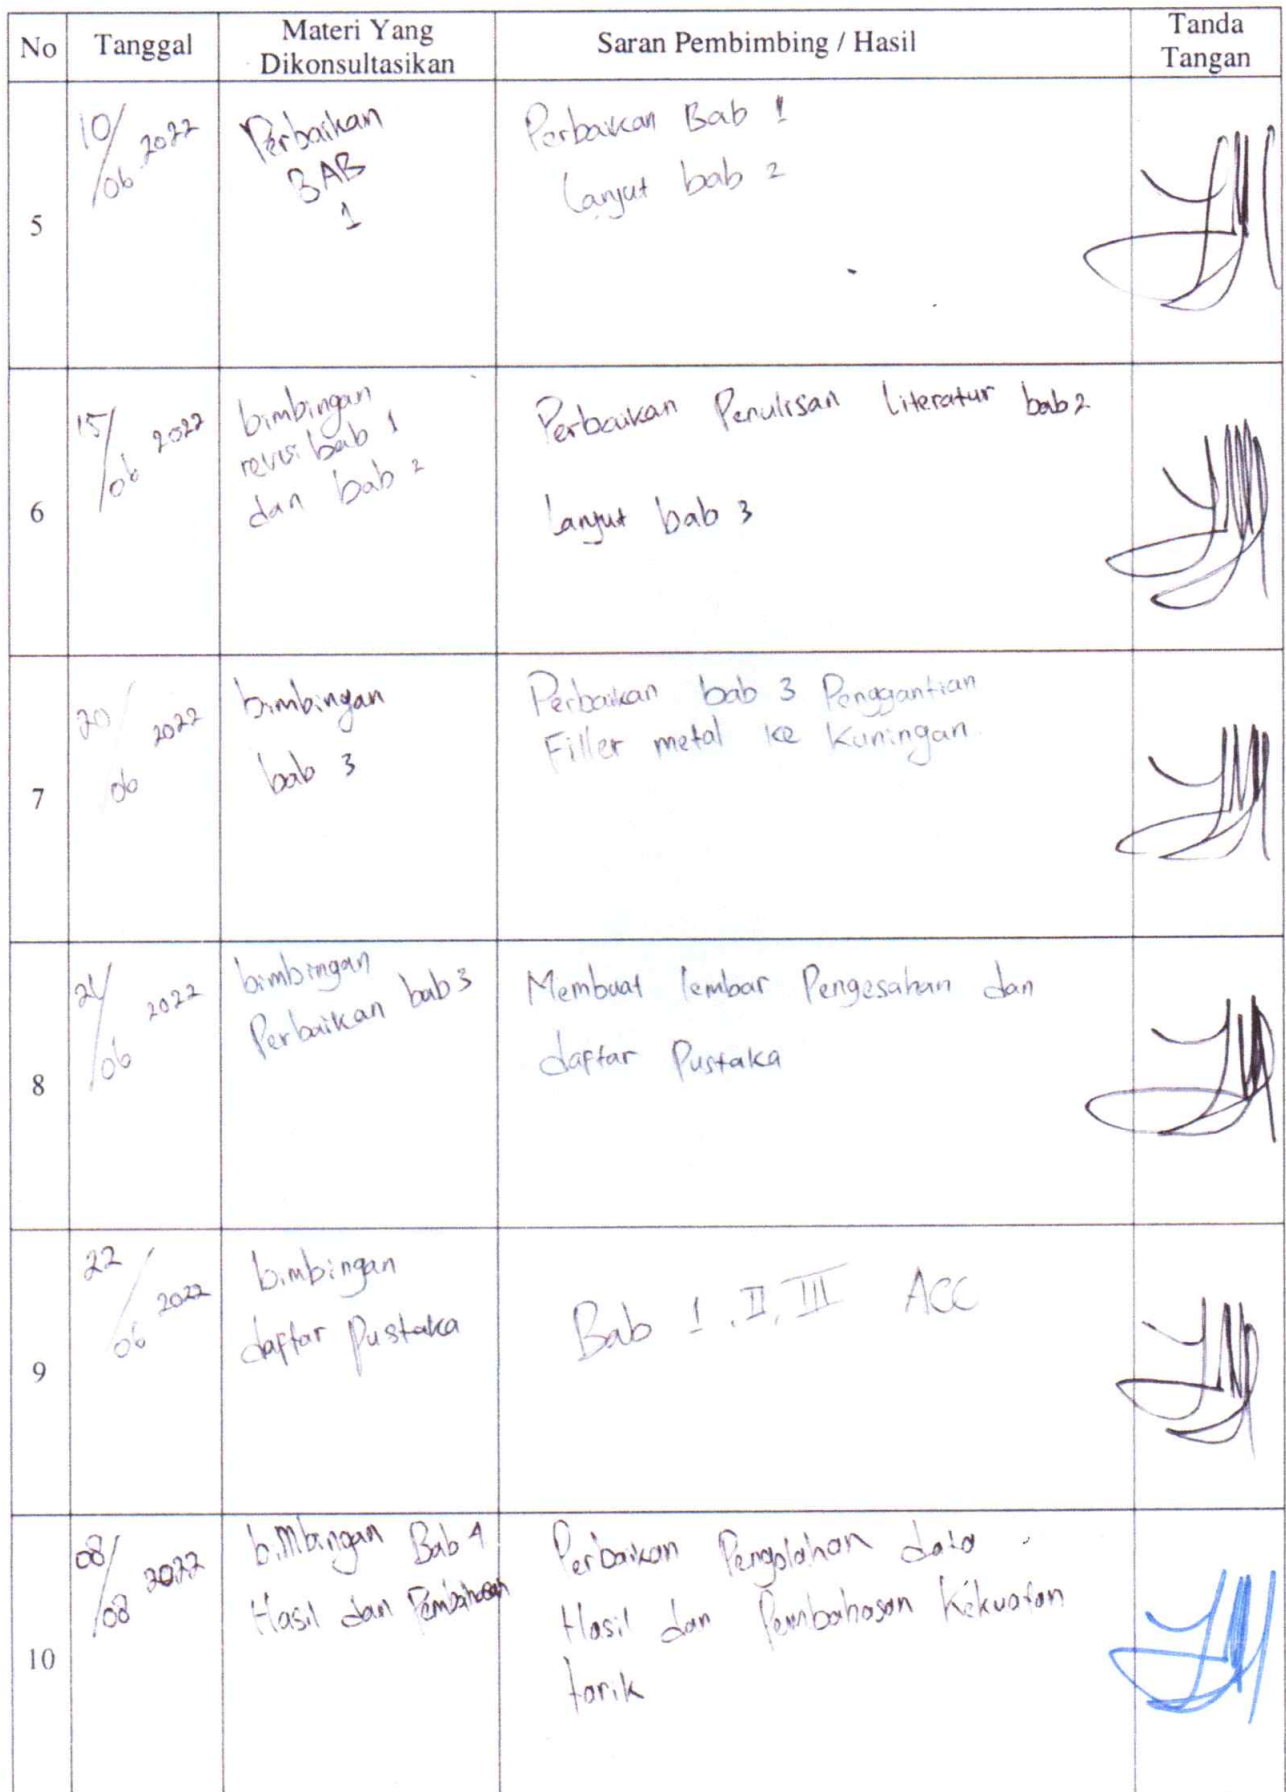 No Tanggal Materi Yang Dikonsultasikan Saran Pembimbing / Hasil Tanda Tangan
5
10/06 2022
Perbaikan
BAB
1
Perbaikan Bab 1
Lanjut bab 2
6
15/06 2022
bimbingan
revisi bab 1
dan bab 2
Perbaikan Penulisan Literatur bab 2
Lanjut bab 3
7
20/06 2022
bimbingan
bab 3
Perbaikan bab 3 Penggantian
Filler metal ke Kuningan.
8
21/06 2022
bimbingan
Perbaikan bab 3
Membuat lembar Pengesahan dan
daftar Pustaka
9
22/06 2022
bimbingan
daftar Pustaka
Bab I, II, III ACC
10
08/08 2022
bimbingan Bab 4
Hasil dan Pembahasan
Perbaikan Pengolahan data
Hasil dan Pembahasan Kekuatan
tarik